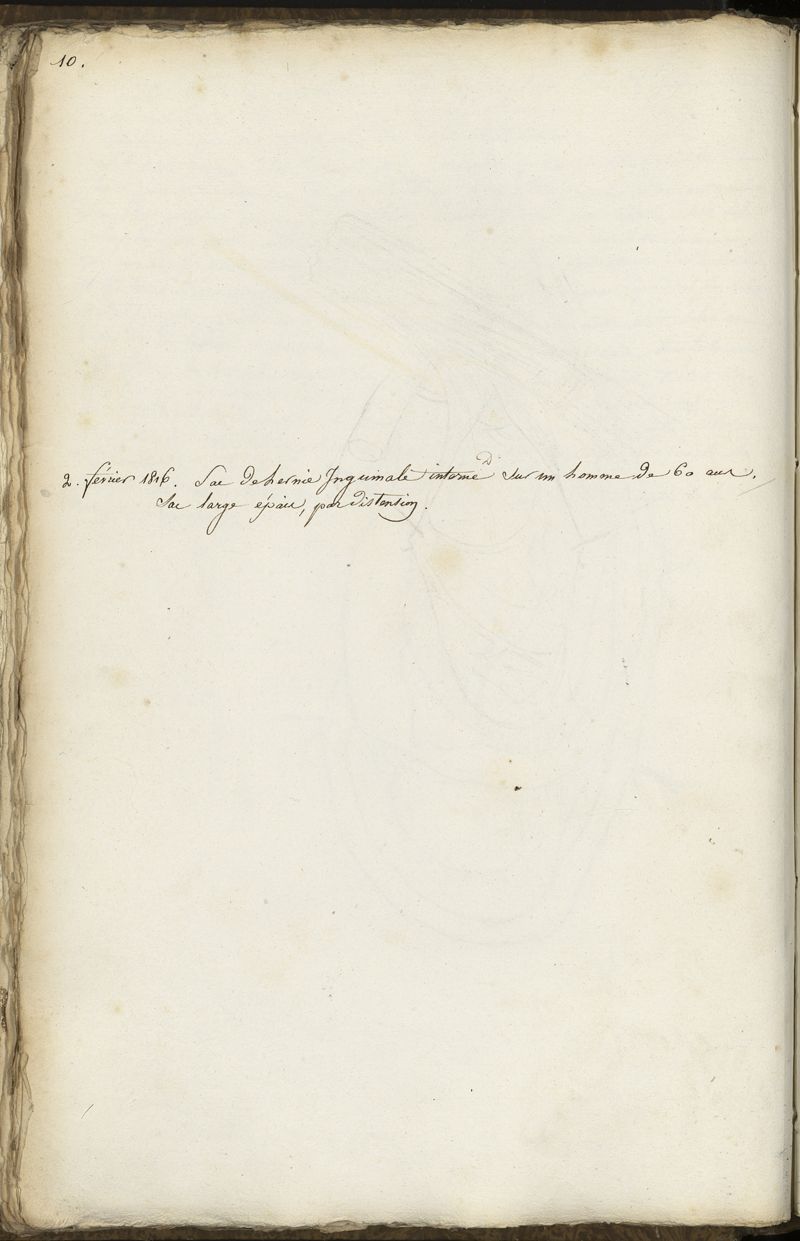 10.
2. février 1816. Sac de hernie Inguinale interne D sur un homme de 60 ans.
Sac large épais, par distension.